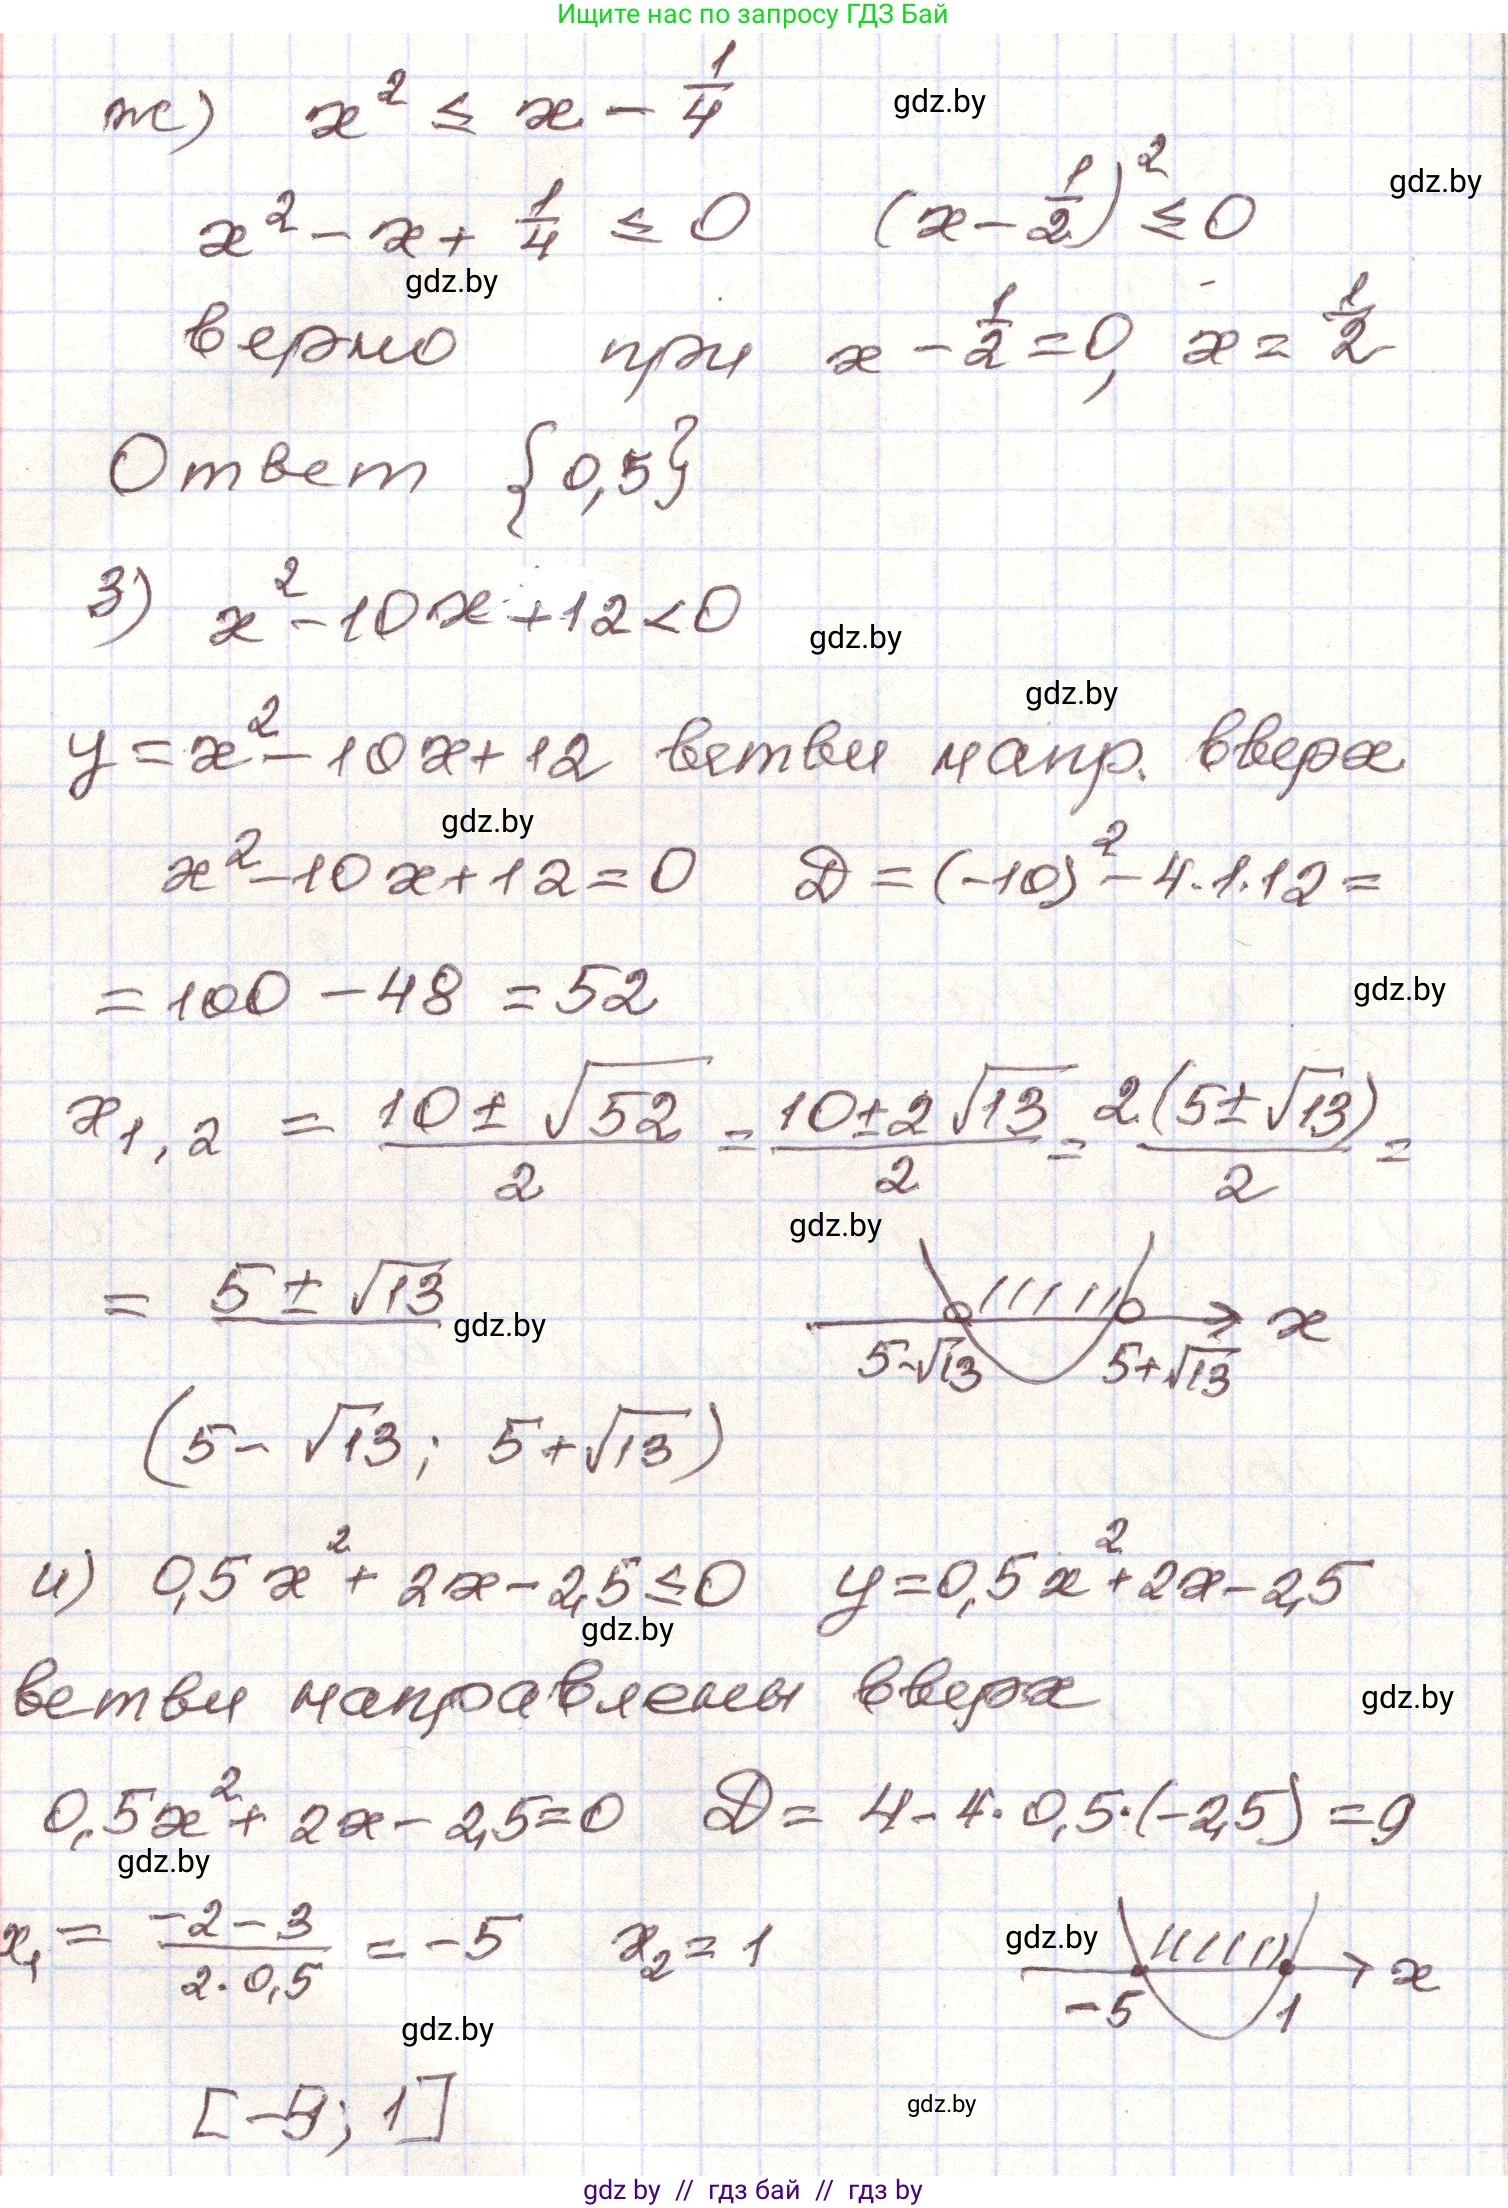 Ищите нас по запросу ГДЗ Бай
ж) x² ≤ x - 1/4
gdz.by
x² - x + 1/4 ≤ 0 (x - 1/2)² ≤ 0
gdz.by
gdz.by
верно при x - 1/2 = 0, x = 1/2
Ответ {0,5}
з) x² - 10x + 12 < 0
gdz.by
gdz.by
y = x² - 10x + 12 ветви напр. вверх
gdz.by
x² - 10x + 12 = 0 D = (-10)² - 4·1·12 =
= 100 - 48 = 52
gdz.by
x₁,₂ = (10 ± √52)/2 = (10 ± 2√13)/2 = 2(5 ± √13)/2 =
gdz.by
= 5 ± √13
gdz.by
x
5-√13 5+√13
(5 - √13; 5 + √13)
и) 0,5x² + 2x - 2,5 ≤ 0 y = 0,5x² + 2x - 2,5
gdz.by
ветви направлены вверх
gdz.by
0,5x² + 2x - 2,5 = 0 D = 4 - 4·0,5·(-2,5) = 9
gdz.by
x₁ = (-2 - 3)/(2·0,5) = -5 x₂ = 1
gdz.by
x
-5 1
gdz.by
[-5; 1]
gdz.by
gdz.by // гдз бай // гдз by